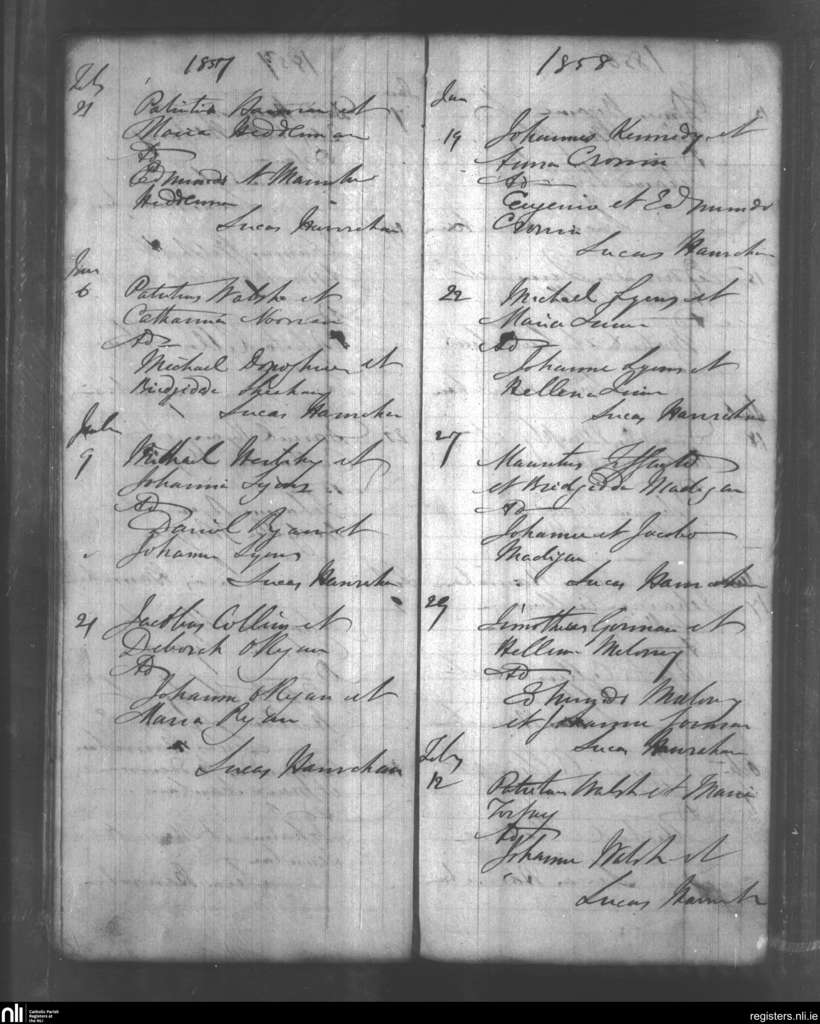 1857
Feb
21 Patritius et
Maria Heddeman
Ad
Edmundo
Lucas Hanrahan
6 Patritius Walsh et
Catharina Noonan
Ad
Michael et
Bridgidda
Lucas Hanrahan
9 Michael et
Johanna Lyons
Ad
Daniel Ryan et
Johanna Lyons
Lucas Hanrahan
21 Jacobus Collins et
Deborah O Ryan
Ad
Johanne O Ryan et
Maria Ryan
Lucas Hanrahan
1858
Jan
19 Johannes Kennedy et
Anna Cronin
Ad
Eugenio et Edmundo
Cronin
Lucas Hanrahan
22 Michael Lyons et
Maria Quin
Ad
Johanne Lyons et
Hellena Quin
Lucas Hanrahan
27 Mauritius
et Bridgidda Madigan
Ad
Johanne et Jacobo
Madigan
Lucas Hanrahan
29 Timotheus Gorman et
Hellena Meloney
Ad
Edmundo Maloney
et Johanne Gorman
Lucas Hanrahan
Feby
12 Patritius Walsh et Maria
Torpey
Ad
Johanne Walsh et
Lucas Hanrahan
nli Catholic Parish
Registers at
the NLI
registers.nli.ie